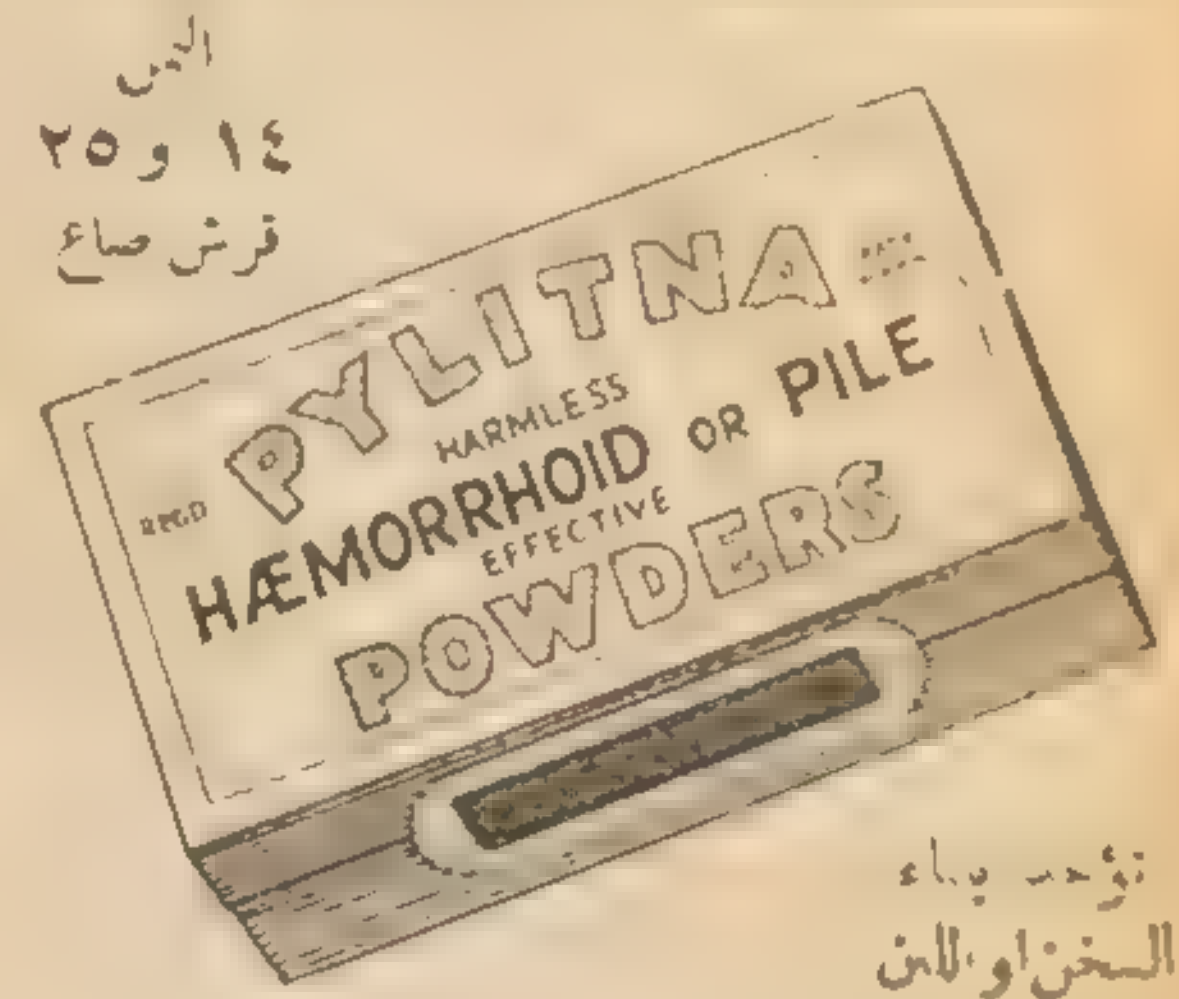 الثمن
١٤ و ٢٥
قرش صاغ
PYLITNA
HARMLESS
REGD
HÆMORRHOID OR PILE
EFFECTIVE
POWDERS
تؤخذ بماء
السخن او اللبن